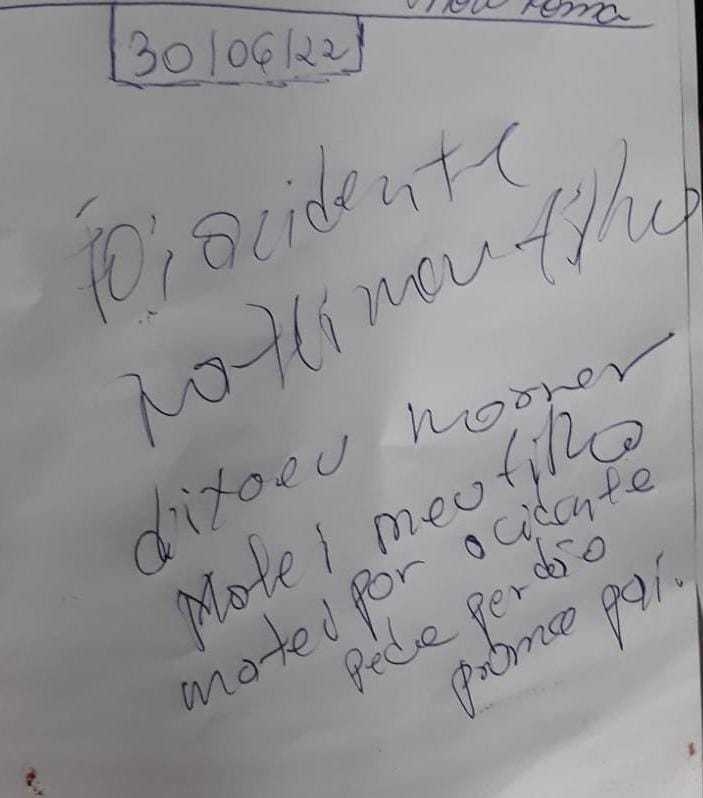 roma
30/06/22
Foi acidente
Matei meu filho
deixa eu morrer
Matei meu filho
matei por acidente
pede perdão
prōmeo pai.